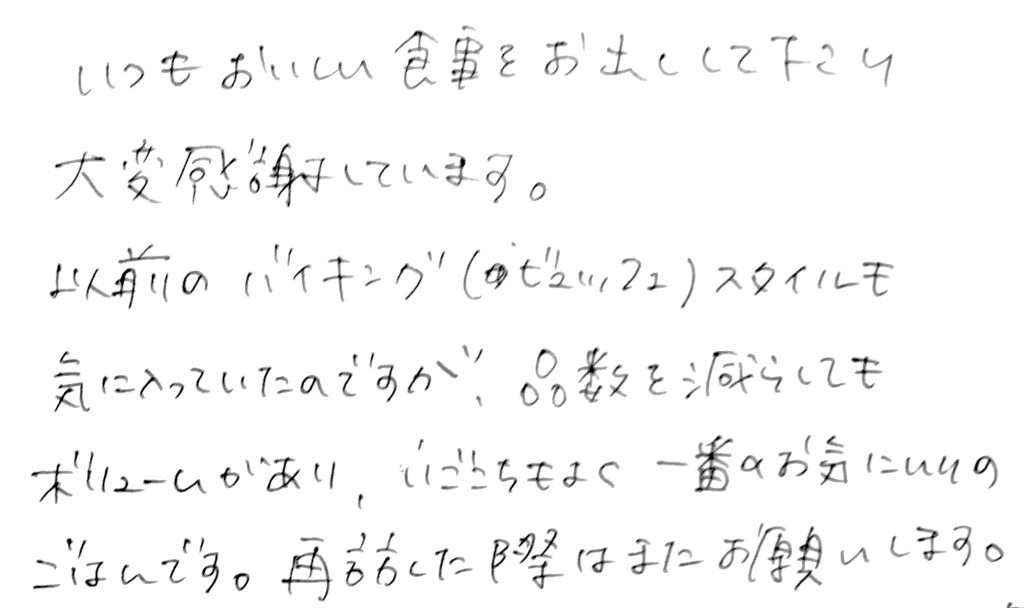 いつもおいしい食事をお出しして下さり
大変感謝しています。
以前のバイキング(ビュッフェ)スタイルも
気に入っていたのですが、品数を減らしても
ボリュームがあり、いごこちもよく 一番のお気にいりの
ごはんです。再訪した際はまたお願いします。